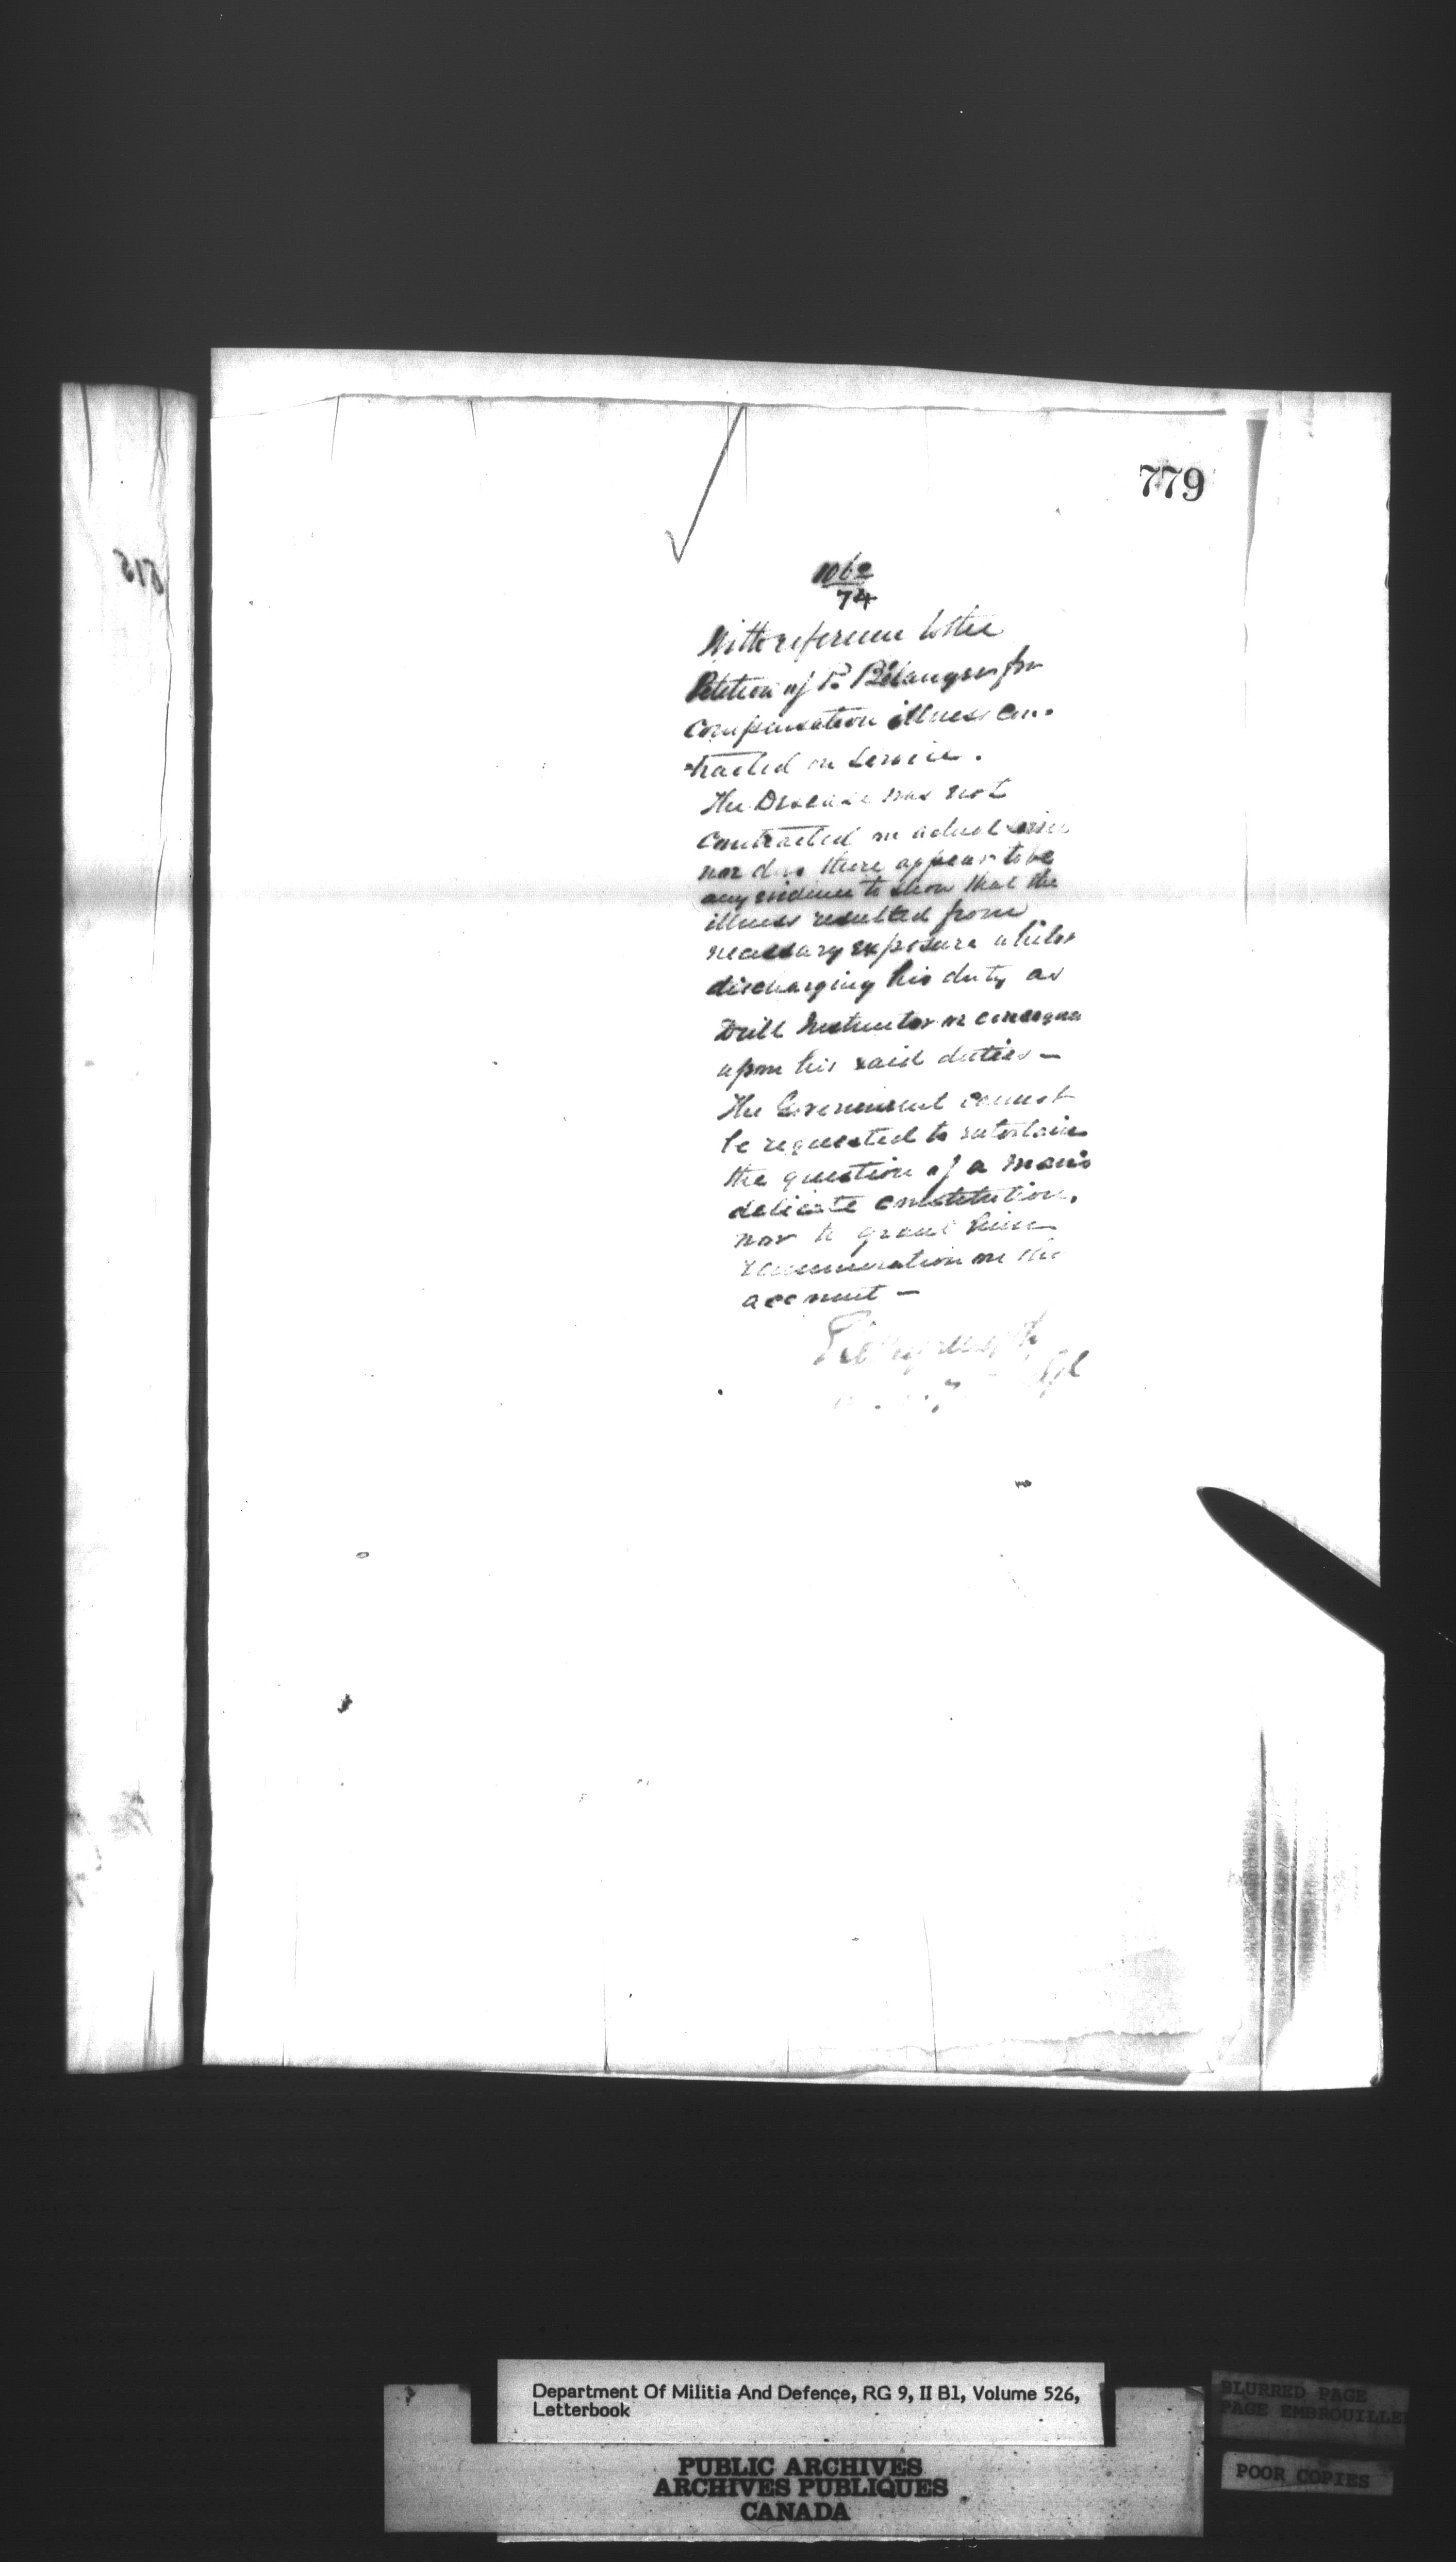 779
1062
74
With reference to the
Petition of P. Bélanger for
compensation illness con-
-tracted on service.
The Disease was not
contracted on actual service
nor does there appear to be
any evidence to show that the
illness resulted from
necessary exposure whilst
discharging his duty as
Drill Instructor or consequent
upon his said duties —
The Government cannot
be requested to entertain
the question of a man's
delicate constitution,
nor to grant him
remuneration on the
account —
Department Of Militia And Defence, RG 9, II B1, Volume 526,
Letterbook
PUBLIC ARCHIVES
ARCHIVES PUBLIQUES
CANADA
BLURRED PAGE
PAGE EMBROUILLE
POOR COPIES